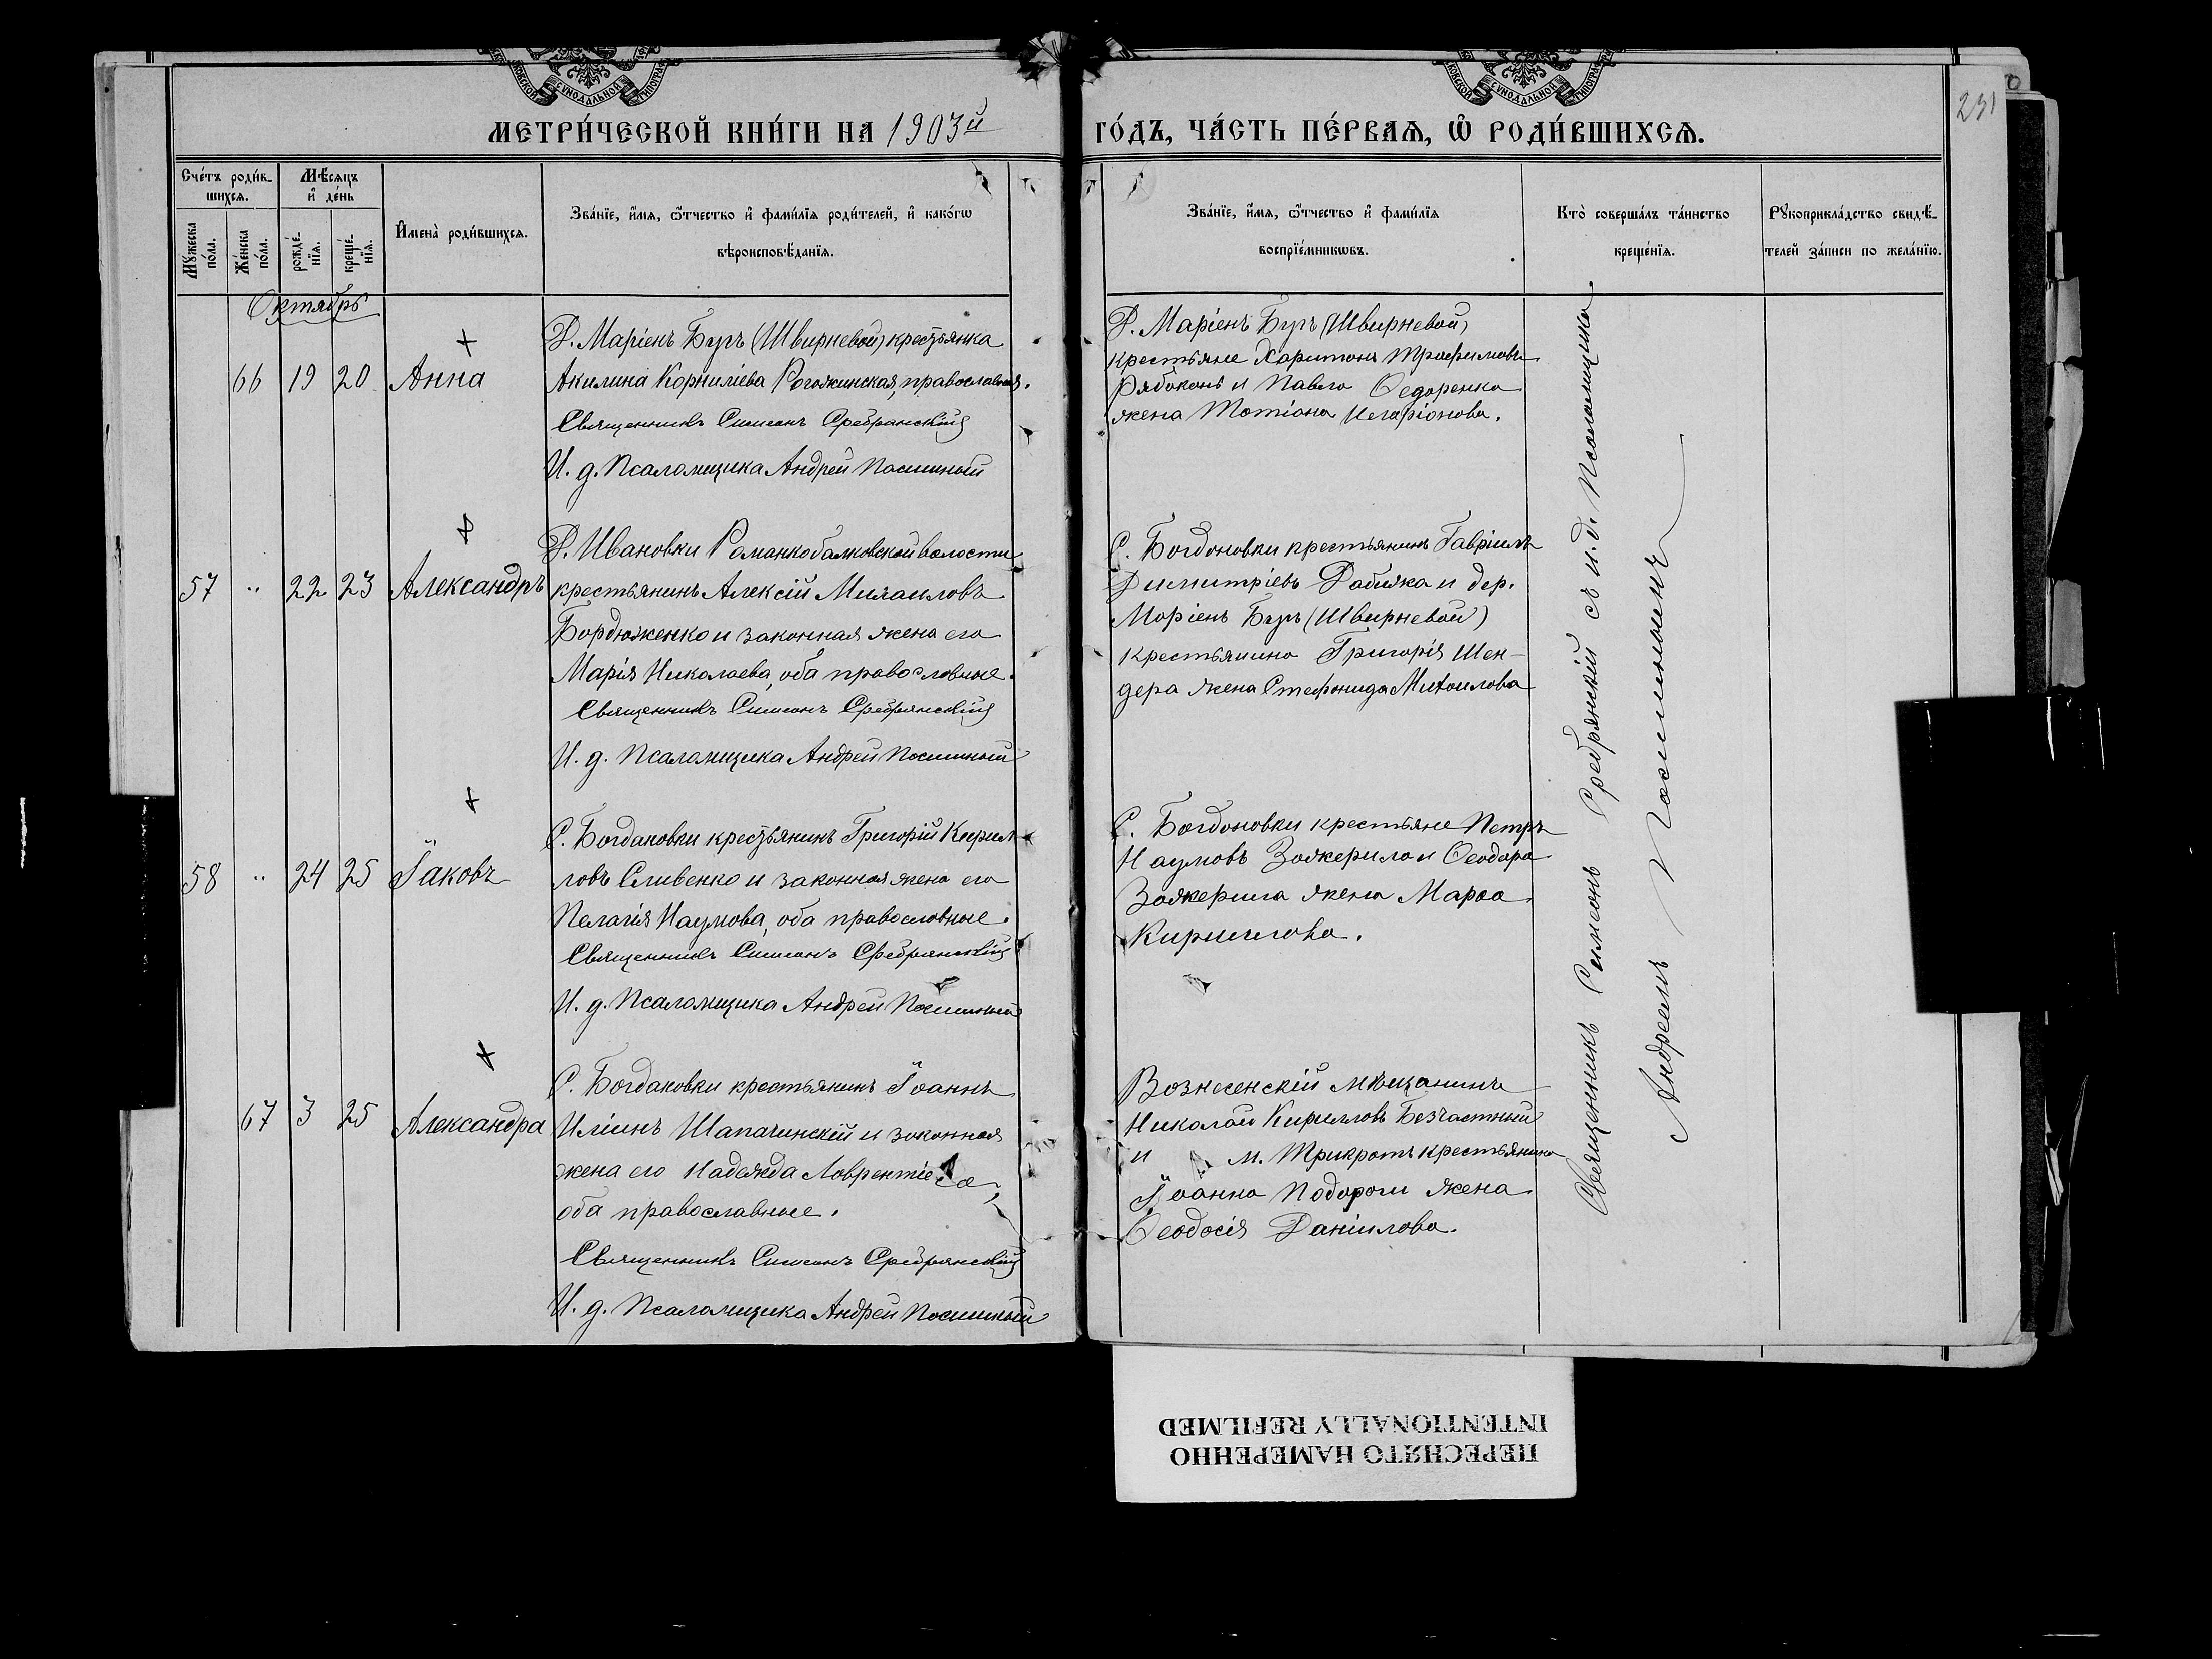 МЕТРИ́ЧЕСКОЙ КНИ́ГИ НА 1903й ГО́ДЪ, ЧА́СТЬ ПЕ́РВАЯ, Ѽ РОДИ́ВШИХСЯ.
231
Сче́тъ роди́в-
шихся.
Мѣ́сяцъ
и҆ де́нь
Мꙋ́жеска по́ла.
Же́нска по́ла.
рожде́-
нїя.
креще́-
нїя.
И҆мена̀ роди́вшихся.
Зва́нїе, и҆́мя, ѻ҆́тчество и҆ фами́лїя роди́телей, и҆ како́гѡ
вѣроисповѣ́данїя.
Зва́нїе, и҆́мя, ѻ҆́тчество и҆ фами́лїя
воспрїе́мникѡвъ.
Кто̀ соверша́лъ та́инство
креще́нїя.
Рꙋкоприкла́дство свидѣ́-
телей за́писи по жела́нїю.
Октябрь
66 19 20 Анна
Д. Маріенъ Буръ (Швирневой) крестьянка
Акилина Корниліева Рогожинская, православная.
Священникъ Симеонъ Сребрянскій
И. д. Псаломщика Андрей Пасишный
Д. Маріенъ Буръ (Швирневой)
крестьяне Харитонъ Трофимовъ
Рябоконь и Павла Ѳедоренка
жена Татіана Иларіонова.
57 " 22 23 Александръ
Д. Ивановки Романкобалковской волости
крестьянинъ Алексій Михаиловъ
Бордюженко и законная жена его
Марія Николаева, оба православные.
Священникъ Симеонъ Сребрянскій
И. д. Псаломщика Андрей Пасишный
С. Богдановки крестьянинъ Гавріилъ
Димитріевъ Рабижа и дер.
Маріенъ Буръ (Швирневой)
крестьянина Григорія Шен-
дера жена Стефанида Михаилова
58 " 24 25 Іаковъ
С. Богдановки крестьянинъ Григорій Кирил
ловъ Сливенко и законная жена его
Пелагія Наумова, оба православные.
Священникъ Симеонъ Сребрянскій
И. д. Псаломщика Андрей Пасишный
С. Богдановки крестьяне Петръ
Наумовъ Зажерила и Ѳеодора
Зажерила жена Марѳа
Кириллова.
67 3 25 Александра
С. Богдановки крестьянинъ Іоаннъ
Иліинъ Шапачинскій и законная
жена его Надежда Лаврентіева,
оба православные.
Священникъ Симеонъ Сребрянскій
И. д. Псаломщика Андрей Пасишный
Вознесенскій мѣщанинъ
Николай Кирилловъ Безчастный
и м. Трикратъ крестьянина
Іоанна Подороги жена
Ѳеодосія Даніилова.
Священникъ Симеонъ Сребрянскій съ и. д. Псаломщика
Андреемъ Пасишнымъ
ПЕРЕСНЯТО НАМЕРЕННО
INTENTIONALLY REFILMED